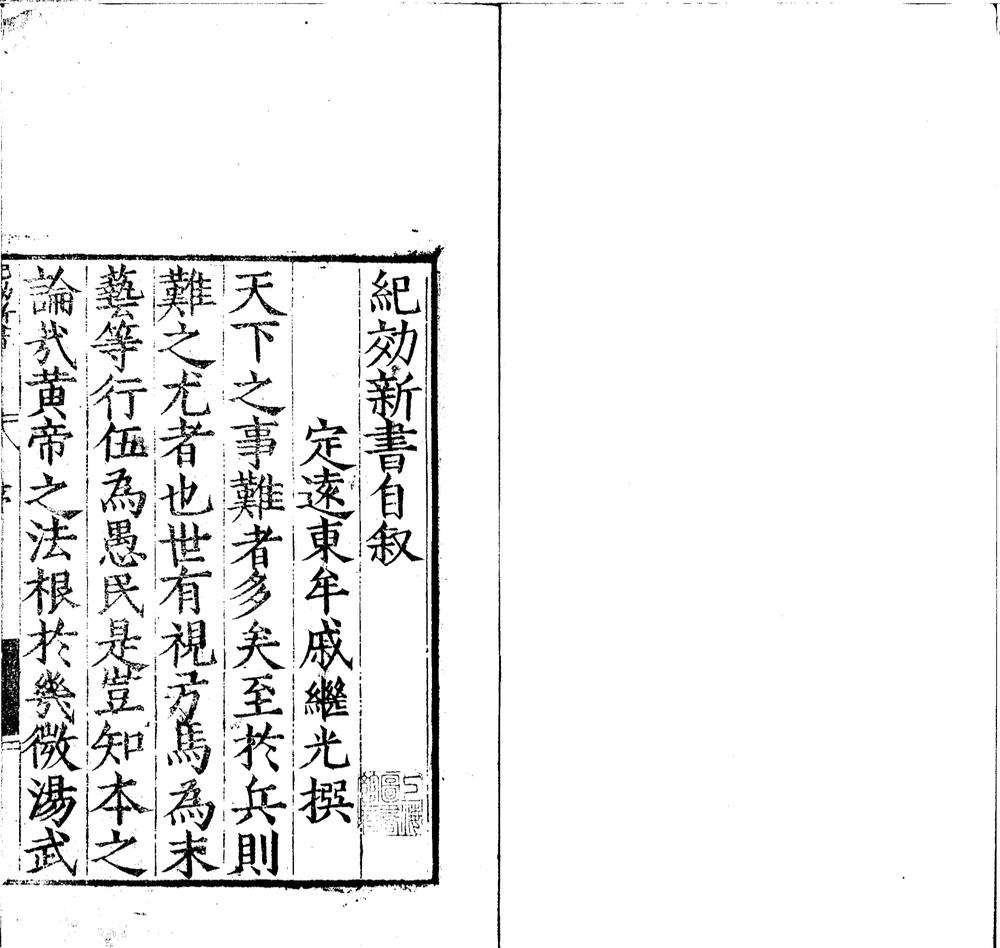 紀効新書自叙
定遠東牟戚繼光撰
天下之事難者多矣至於兵則
難之尤者也世有視弓馬為末
藝等行伍為愚民是豈知本之
論㢤黃帝之法根於幾微湯武